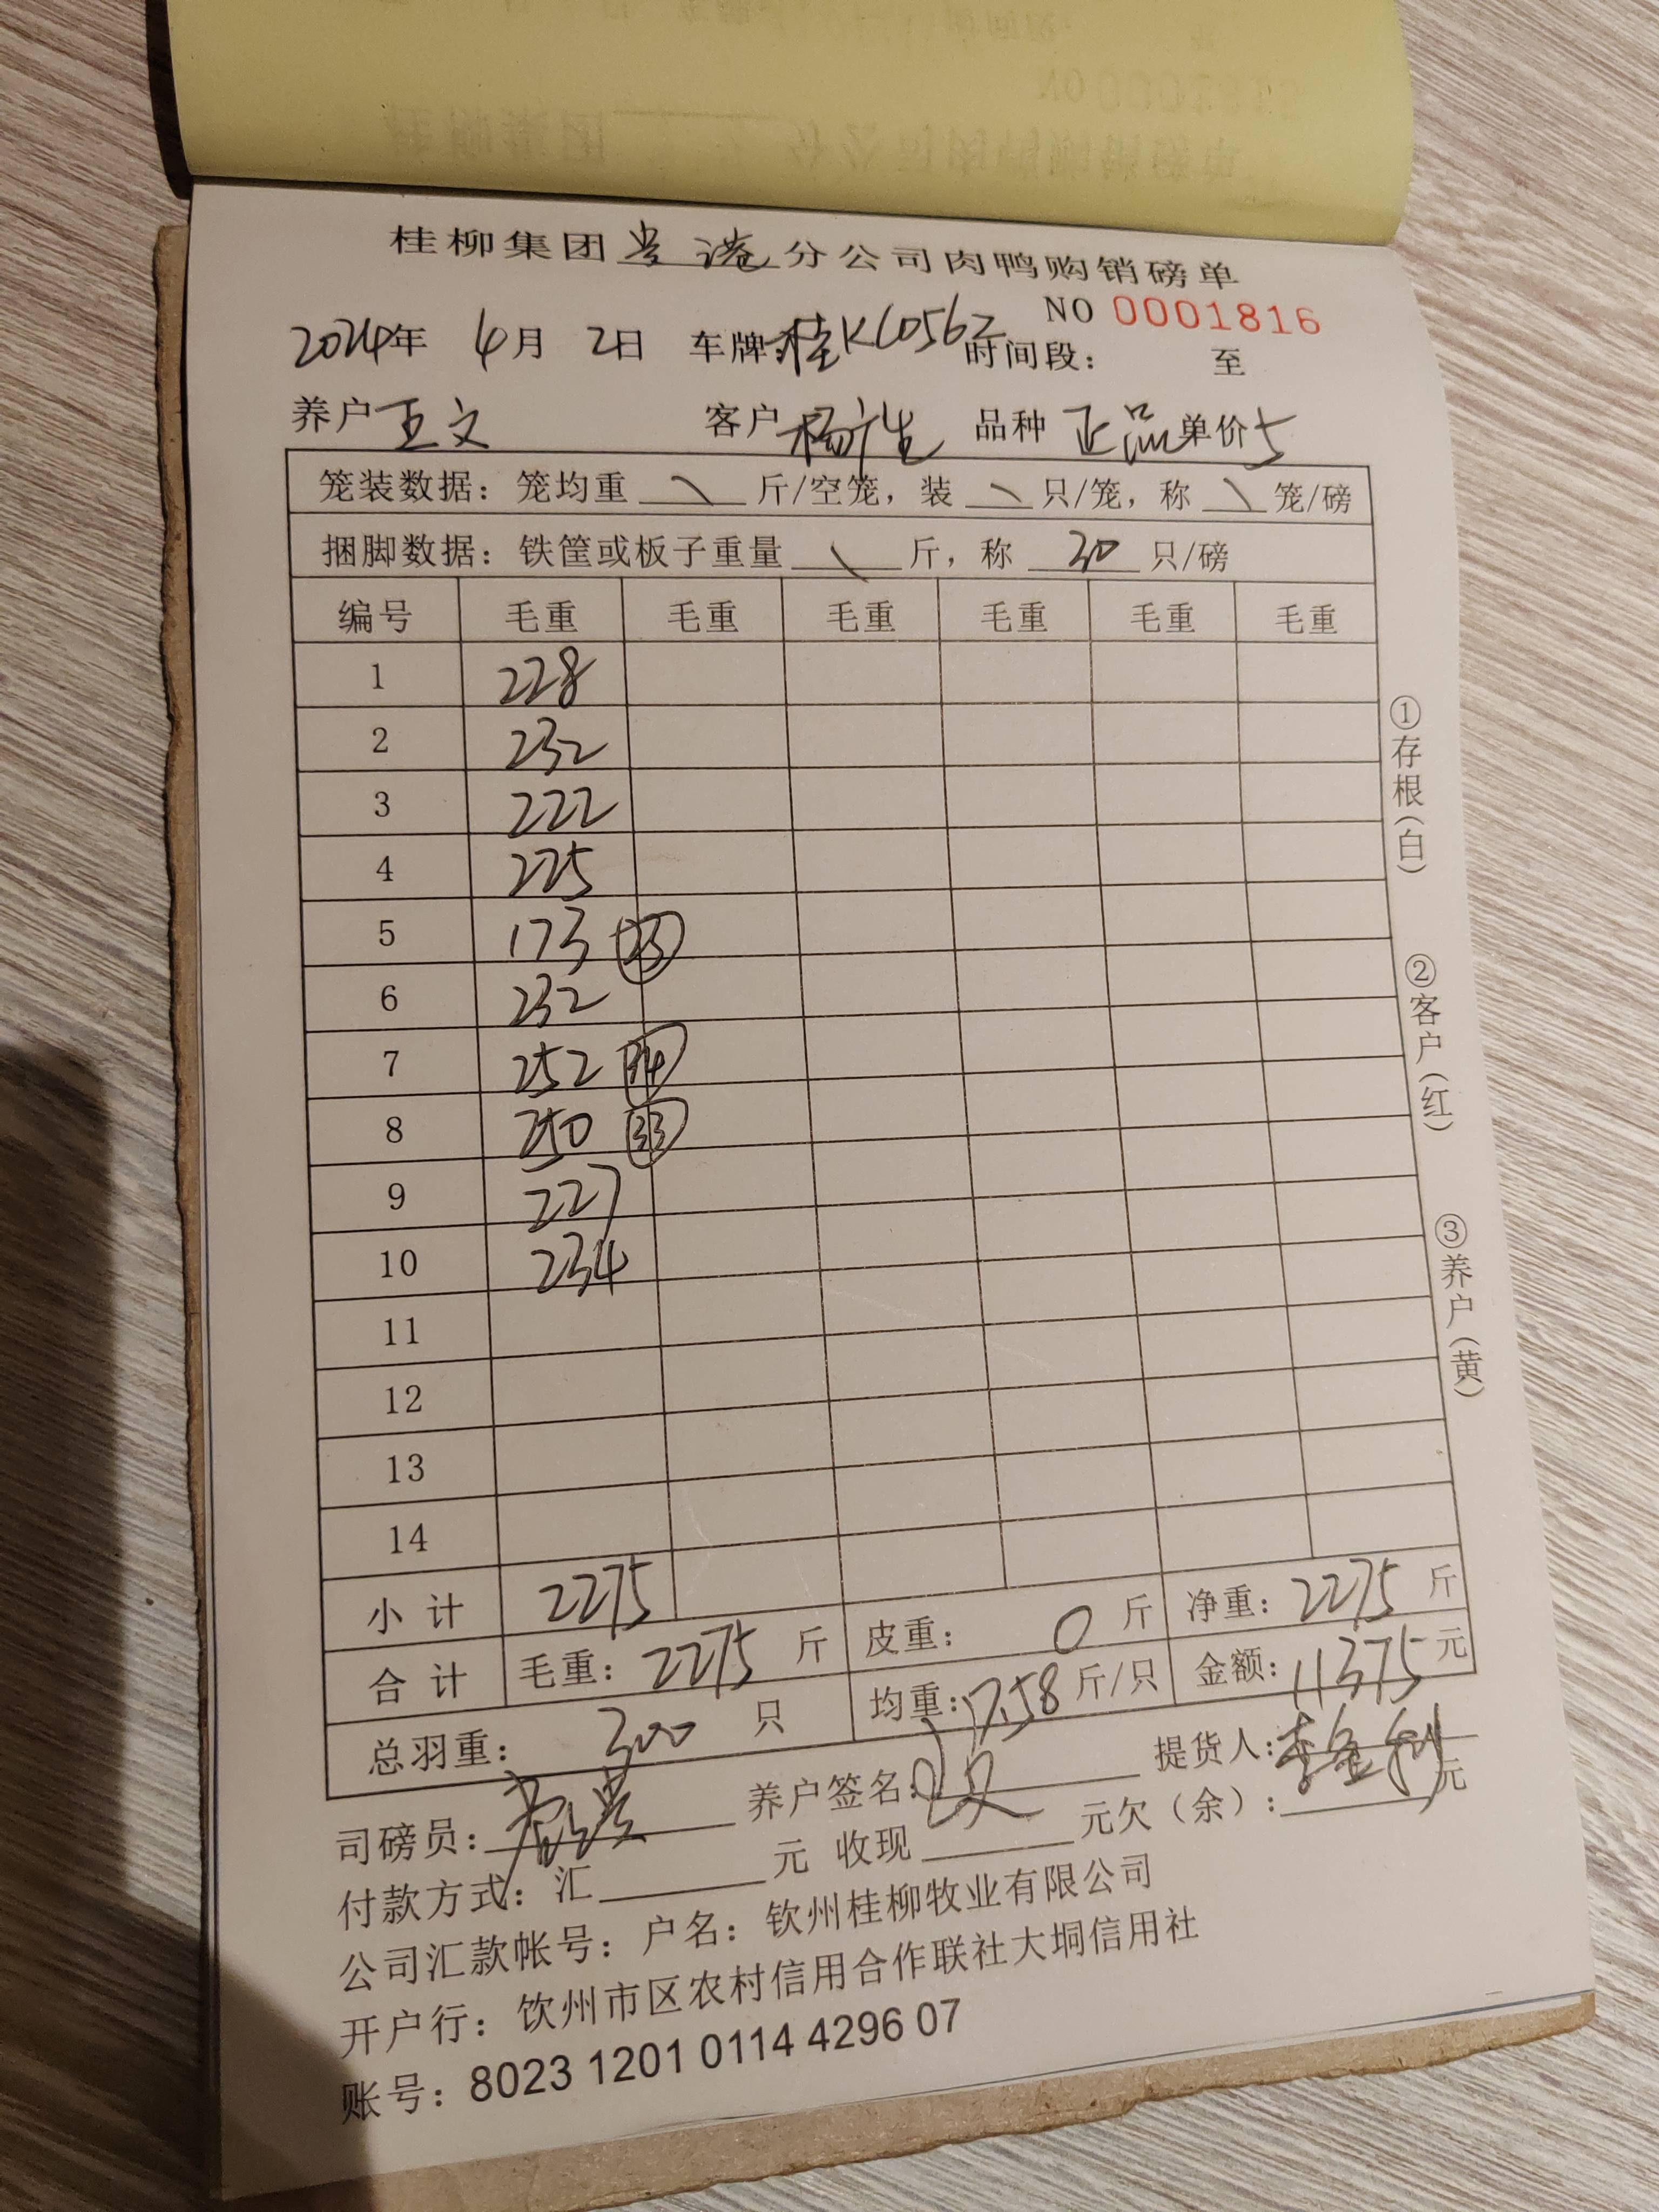 桂柳集团贵港分公司肉鸭购销磅单
NO 0001816
2024年 4月 2日 车牌:桂KC0562 时间段: 至
养户 王文 客户 杨 品种 正品 单价 5
笼装数据:笼均重 \ 斤/空笼,装 \ 只/笼,称 \ 笼/磅
捆脚数据:铁筐或板子重量 \ 斤,称 30 只/磅
编号 毛重 毛重 毛重 毛重 毛重 毛重
1 228
2 232
3 222
4 225
5 173 23
6 232
7 252 34
8 250 33
9 227
10 234
11
12
13
14
小计 2275
合计 毛重:2275 斤 皮重: 0 斤 净重:2275 斤
总羽重: 300 只 均重:7.58 斤/只 金额:11375 元
司磅员: 养户签名: 提货人:李金利
付款方式:汇 元 收现 元欠(余): 元
公司汇款帐号:户名:钦州桂柳牧业有限公司
开户行:钦州市区农村信用合作联社大垌信用社
账号:8023 1201 0114 4296 07
①存根(白)
②客户(红)
③养户(黄)